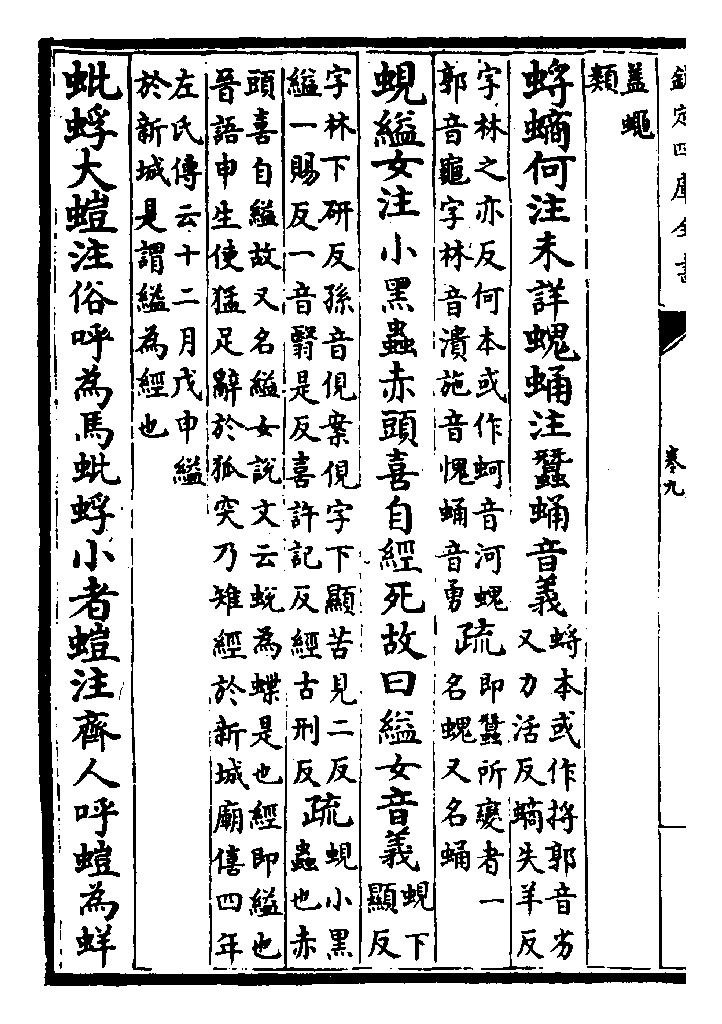 欽定四庫全書
卷九
蓋蠅
類
蛶螪何注未詳螝蛹注蠶蛹音義蛶本或作捋郭音劣
又力活反螪失羊反
字林之亦反何本或作蚵音河螝
郭音龜字林音潰施音愧蛹音勇疏即蠶所變者一
名螝又名蛹
蜆縊女注小黑蟲赤頭喜自經死故曰縊女音義蜆下
顯反
字林下研反孫音俔案俔字下顯苦見二反
縊一賜反一音翳是反喜許記反經古刑反疏蜆小黑
蟲也赤
頭喜自縊故又名縊女說文云蛻為蝶是也經即縊也
晉語申生使猛足辭於狐突乃雉經於新城廟僖四年
左氏傳云十二月戊申縊
於新城是謂縊為經也
蚍蜉大螘注俗呼為馬蚍蜉小者螘注齊人呼螘為蛘